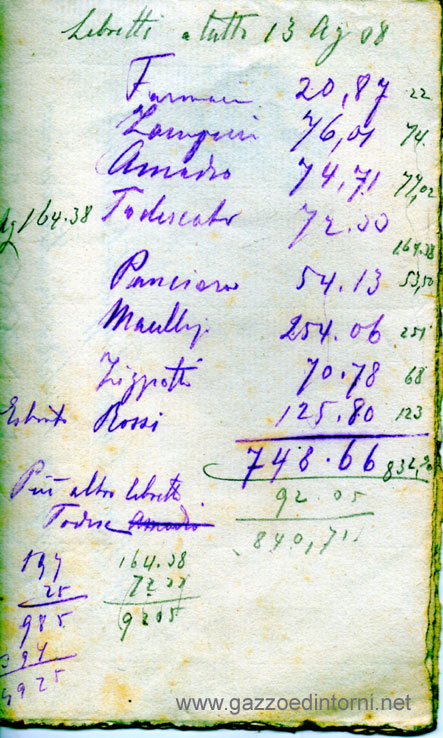 Libretti a tutto 13 Ag 08
Farmaci 20,87 22
Zampieri 76,01 74.
Amadio 74,71 77,02
Ag 164.38 Todescato 72.33
164.38
Panciera 54.13 53,50
254.06 251
Zigiotti 70.78 68
Rossi 125.80 123
748.66 832,90
Più altro libretti 92.05
Todesc Amadio 840,71
197 164.38
25 72.33
985 92 05
394
4925
www.gazzoedintorni.net